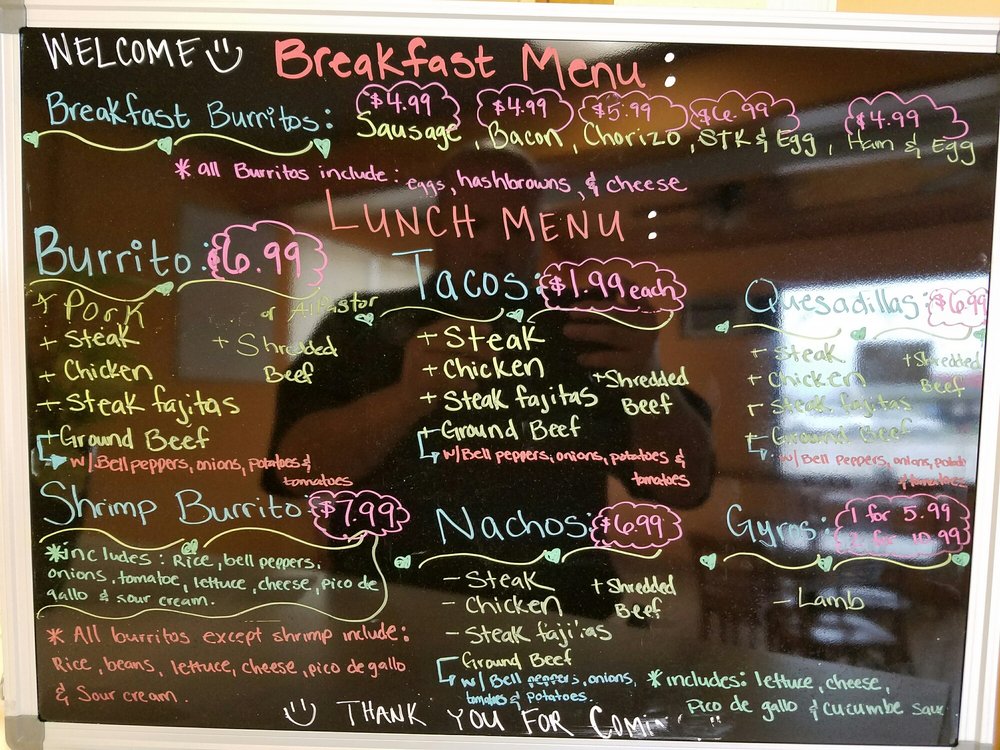 WELCOME Breakfast Menu:
Breakfast Burritos: $4.99 $4.99 $5.99 $6.99 $4.99
Sausage, Bacon, Chorizo, STK & Egg, Ham & Egg
* all Burritos include: eggs, hashbrowns, & cheese
LUNCH MENU:
Burrito: $6.99
+ Pork or Al Pastor
+ Steak + Shredded Beef
+ Chicken
+ Steak fajitas
+ Ground Beef
w/ Bell peppers, onions, potatoes &
tomatoes
Tacos: $1.99 each
+ Steak
+ Chicken + Shredded Beef
+ Steak fajitas
+ Ground Beef
w/ Bell peppers, onions, potatoes &
tomatoes
Quesadillas: $6.99
+ Steak + Shredded Beef
+ Chicken
+ Steak fajitas
+ Ground Beef
w/ Bell peppers, onions, potato
& tomatoes
Shrimp Burrito: $7.99
*includes: Rice, bell peppers,
onions, tomatoe, lettuce, cheese, pico de
gallo & sour cream.
* All burritos except shrimp include:
Rice, beans, lettuce, cheese, pico de gallo
& Sour cream.
Nachos: $6.99
- Steak + Shredded Beef
- Chicken
- Steak fajitas
Ground Beef
w/ Bell peppers, onions,
tomatoes & Potatoes.
Gyros: 1 for 5.99
2 for 10.99
- Lamb
*includes: lettuce, cheese,
pico de gallo & cucumbe sauc
THANK YOU FOR Comin